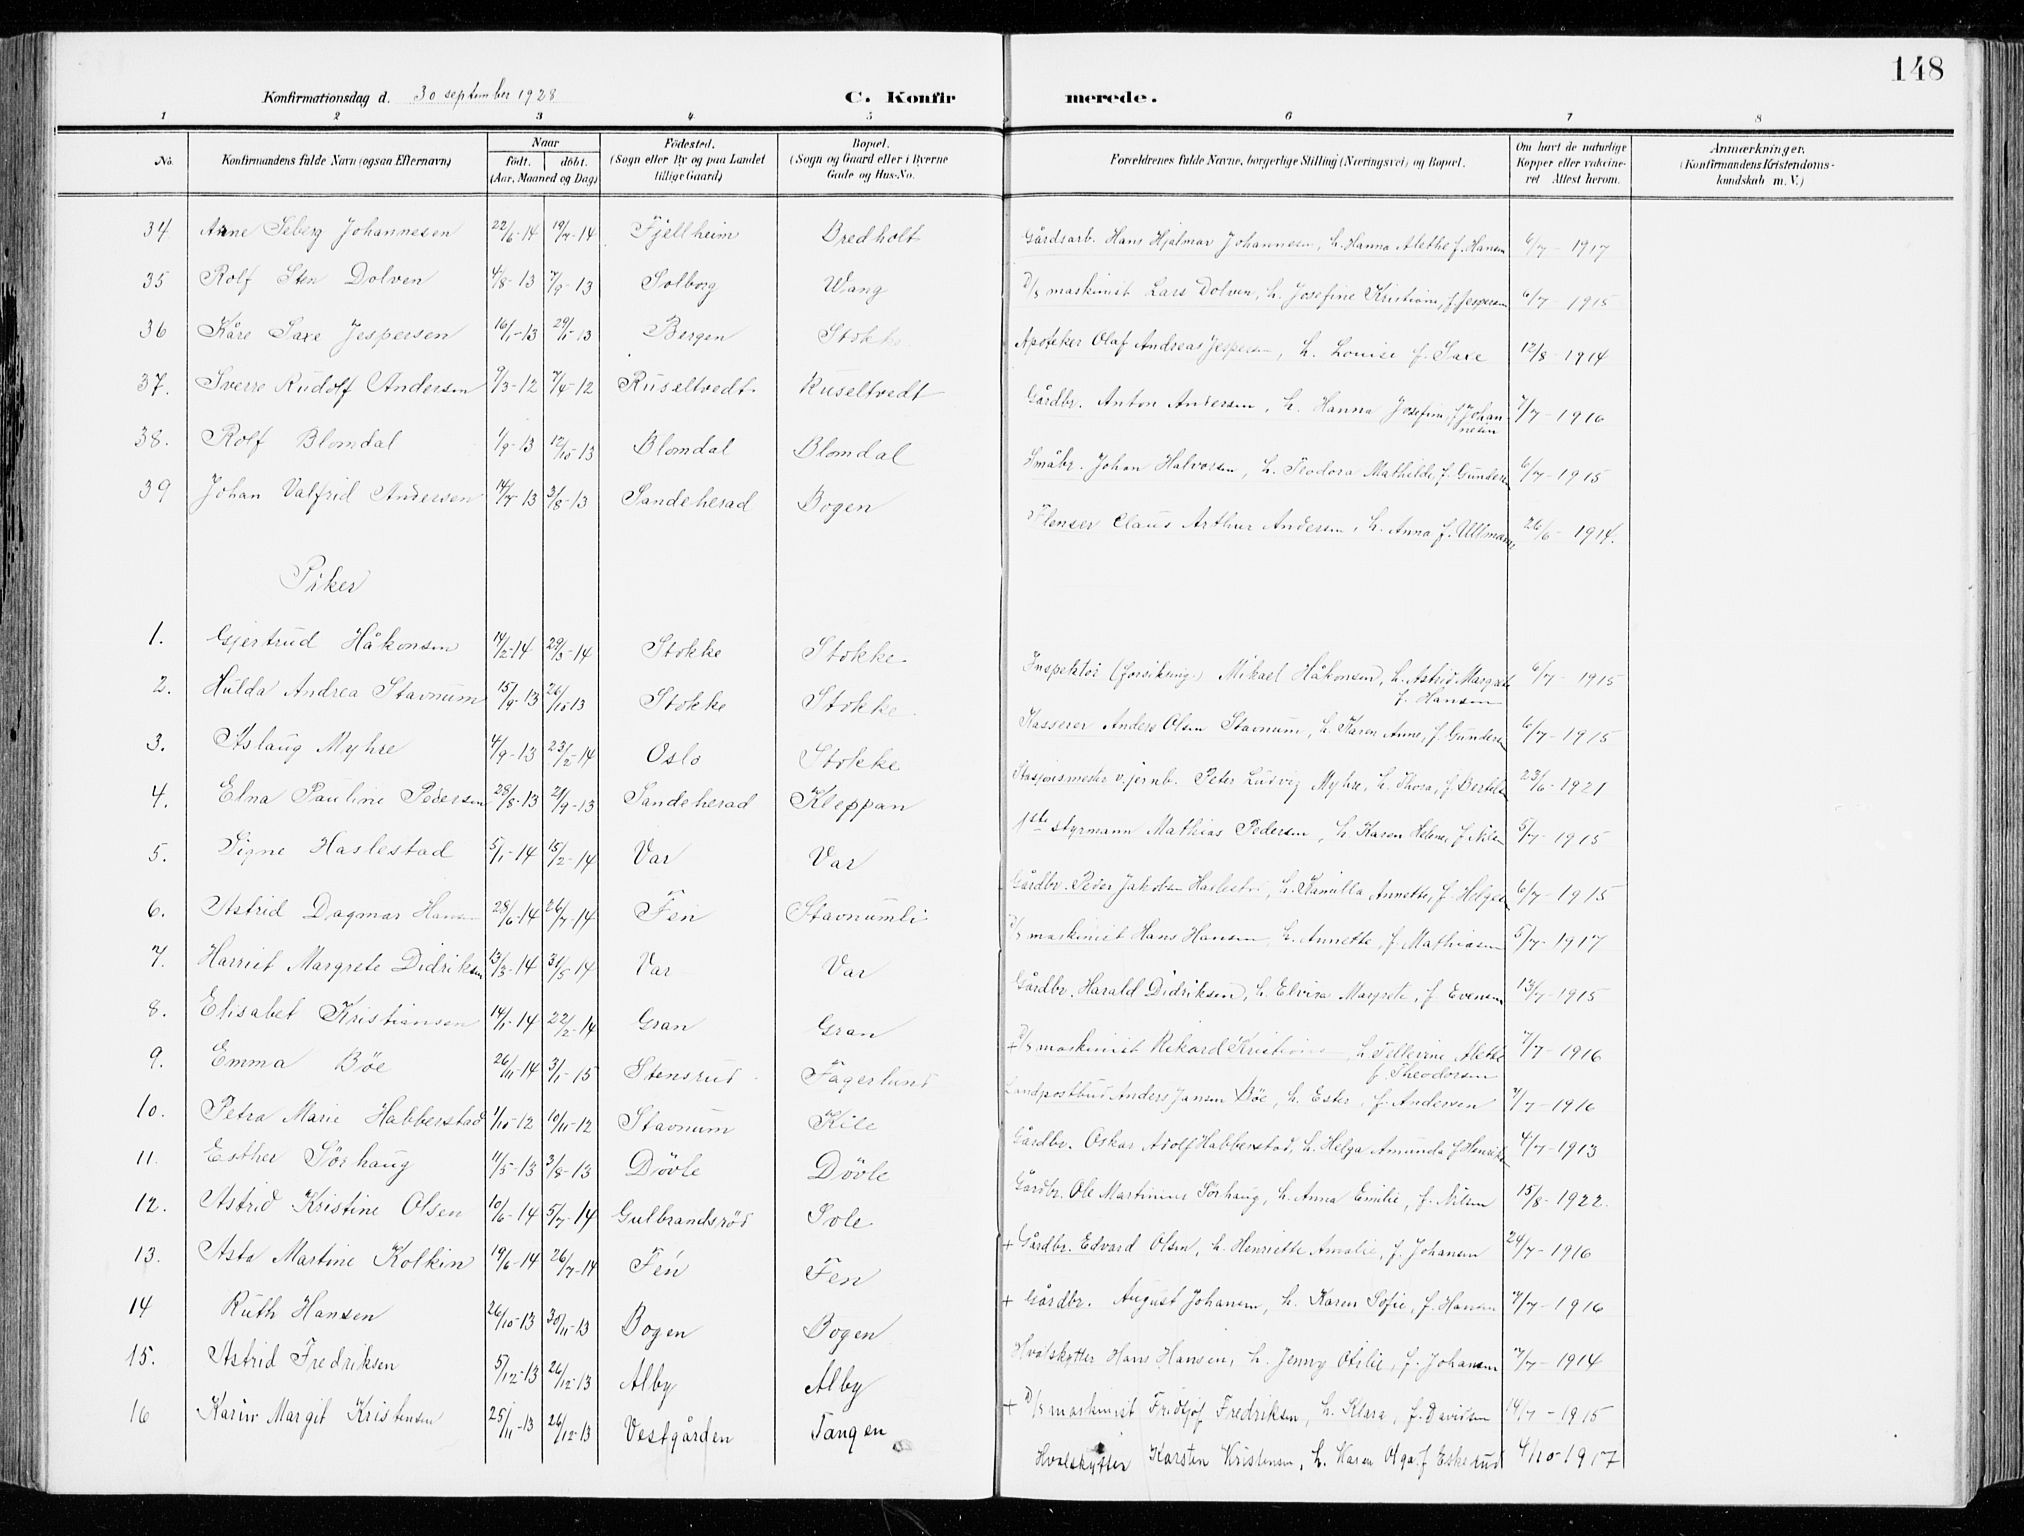 148
Konfirmationsdag d. 30 september 1928 C. Konfirmerede.
1 2 3 4 5 6 7 8
No. Konfirmandens fulde Navn (ogsaa Efternavn) Naar født. døbt. (Aar, Maaned og Dag) Fødested. (Sogn eller By og paa Landet tillige Gaard) Bopæl. (Sogn og Gaard eller i Byerne Gade og Hus-No. Forældrenes fulde Navne, borgerlige Stilling (Næringsvei) og Bopæl. Om havt de naturlige Kopper eller vaccineret Attest herom. Anmærkninger. (Konfirmandens Kristendomskundskab m. V.)
34 Anne Seberg Johannesen 22/6-14 19/7-14 Fjellheim Bredholt Gårdsarb. Hans Hjalmar Johannesen, h. Hanna Alethe f. Hansen 6/7-1917
35 Rolf Sten Dolven 4/8-13 7/9-13 Solborg Wang D/s maskinist Lars Dolven, h. Josefine Kristiane, f. Jespersen 6/7-1915
36 Kåre Saxe Jespersen 16/1-13 29/1-13 Bergen Stokke Apoteker Olaf Andreas Jespersen, h. Louise f. Saxe 12/8-1914
37. Sverre Rudolf Andersen 9/3-12 7/4-12 Ruseltvedt Ruseltvedt Gårdbr. Anton Andersen, h. Hanna Josefine, f. Johannesen 7/7-1916
38. Rolf Blomdal 1/9-13 12/10-13 Blomdal Blomdal Småbr. Johan Halvorsen, h. Teodora Mathilde, f. Gundersen 6/7-1915
39 Johan Valfrid Andersen 14/7-13 3/8-13 Sandeherad Bogen Flenser Claus Arthur Andersen, h. Anna f. Ullmann 26/6-1914.
Piker
1. Gjertrud Håkonsen 14/2-14 29/3-14 Stokke Stokke Inspektør (forsikring.) Mikael Håkonsen, h. Astrid Margrete f. Hansen 6/7-1915
2. Hulda Andrea Stavnum 15/9-13 26/10-13 Stokke Stokke Kasserer Anders Olsen Stavnum, h. Karen Anne, f. Gundersen 6/7-1915
3. Aslaug Myhre 4/9-13 23/2-14 Oslo Stokke Stasjonsmester v. jernb. Peter Ludvig Myhre, h. Thora, f. Bertelsen 23/6-1921
4. Elna Pauline Pedersen 28/8-13 21/9-13 Sandeherad Kleppan 1ste styrmann Mathias Pedersen, h. Karen Helene, f. Nilsen 5/7-1915
5. Signe Haslestad 5/1-14 15/2-14 Var Var Gårdbr. Peder Jakobsen Haslestad, h. Kamilla Annette, f. Helgesen 6/7-1915
6. Astrid Dagmar Hansen 28/6-14 26/7-14 Fen Stavnumli D/s maskinist Hans Hansen, h. Annette, f. Mathiasen 5/7-1917
7. Harriet Margrete Didriksen 13/3-14 31/5-14 Var Var Gårdbr. Harald Didriksen, h. Elvira Margrete, f. Evensen 13/7-1915
8. Elisabet Kristiansen 14/1-14 22/2-14 Gran Gran + D/s maskinist Rikard Kristiansen, h. Pellevine Alethe f. Theodorsen 7/7-1916
9. Emma Bøe 26/11-14 3/1-15 Stensrud Fagerlund Landpostbud Anders Jansen Bøe, h. Ester, f. Andersen 7/7-1916
10. Petra Marie Habberstad 1/10-12 10/11-12 Stavnum Kile Gårdbr. Oskar Adolf Habberstad, h. Helga Amunda f. Henriksen 4/7-1913
11. Esther Sørhaug 11/5-13 3/8-13 Døvle Døvle Gårdbr. Ole Martinius Sørhaug, h. Anna Emilie, f. Nilsen 15/8-1922.
12. Astrid Kristine Olsen 10/6-14 5/7-14 Gulbrandsrød Sole + Gårdbr. Edvard Olsen, h. Henriette Amalie, f. Johansen 24/7-1916
13. Asta Martine Kolkin 19/6-14 26/7-14 Fén Fen + Gårdbr. August Johansen, h. Karen Sofie, f. Hansen 7/7-1916
14 Ruth Hansen 26/10-13 30/11-13 Bogen Bogen Hvalskytter Hans Hansen, h. Jenny Otilie, f. Johansen 7/7-1914
15. Astrid Fredriksen 5/12-13 26/12-13 Alby Alby + D/s maskinist Fridtjof Fredriksen, h. Klara, f. Davidsen 14/7-1915
16 Karin Margit Kristensen 25/11-13 26/12-13 Vestgården Tangen Hvalskytter Karsten Kristensen, h. Karen Olga f. Eskerud 4/10-1917